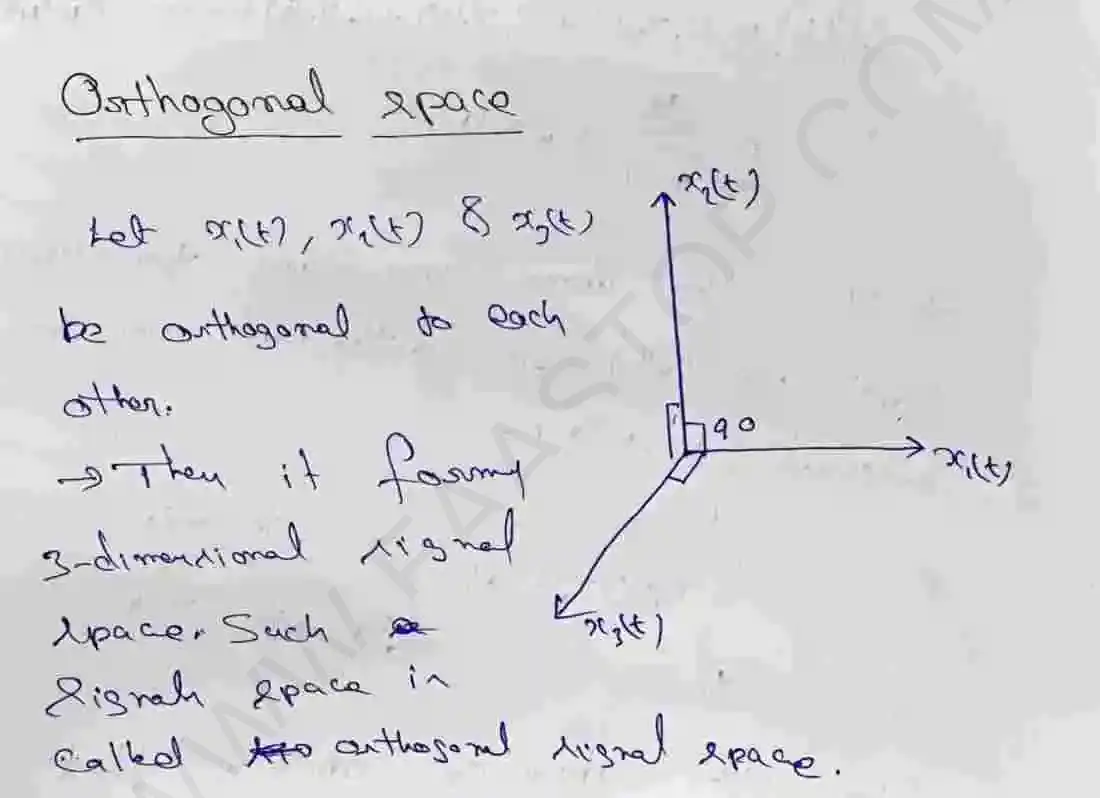 Orthogonal space
Let x₁(t), x₂(t) & x₃(t)
be orthogonal to each
other.
→ Then it forms
3-dimensional signal
space. Such
signals space is
called orthogonal signal space.
x₂(t)
90
x₁(t)
x₃(t)
WWW.FAASTOP.COM